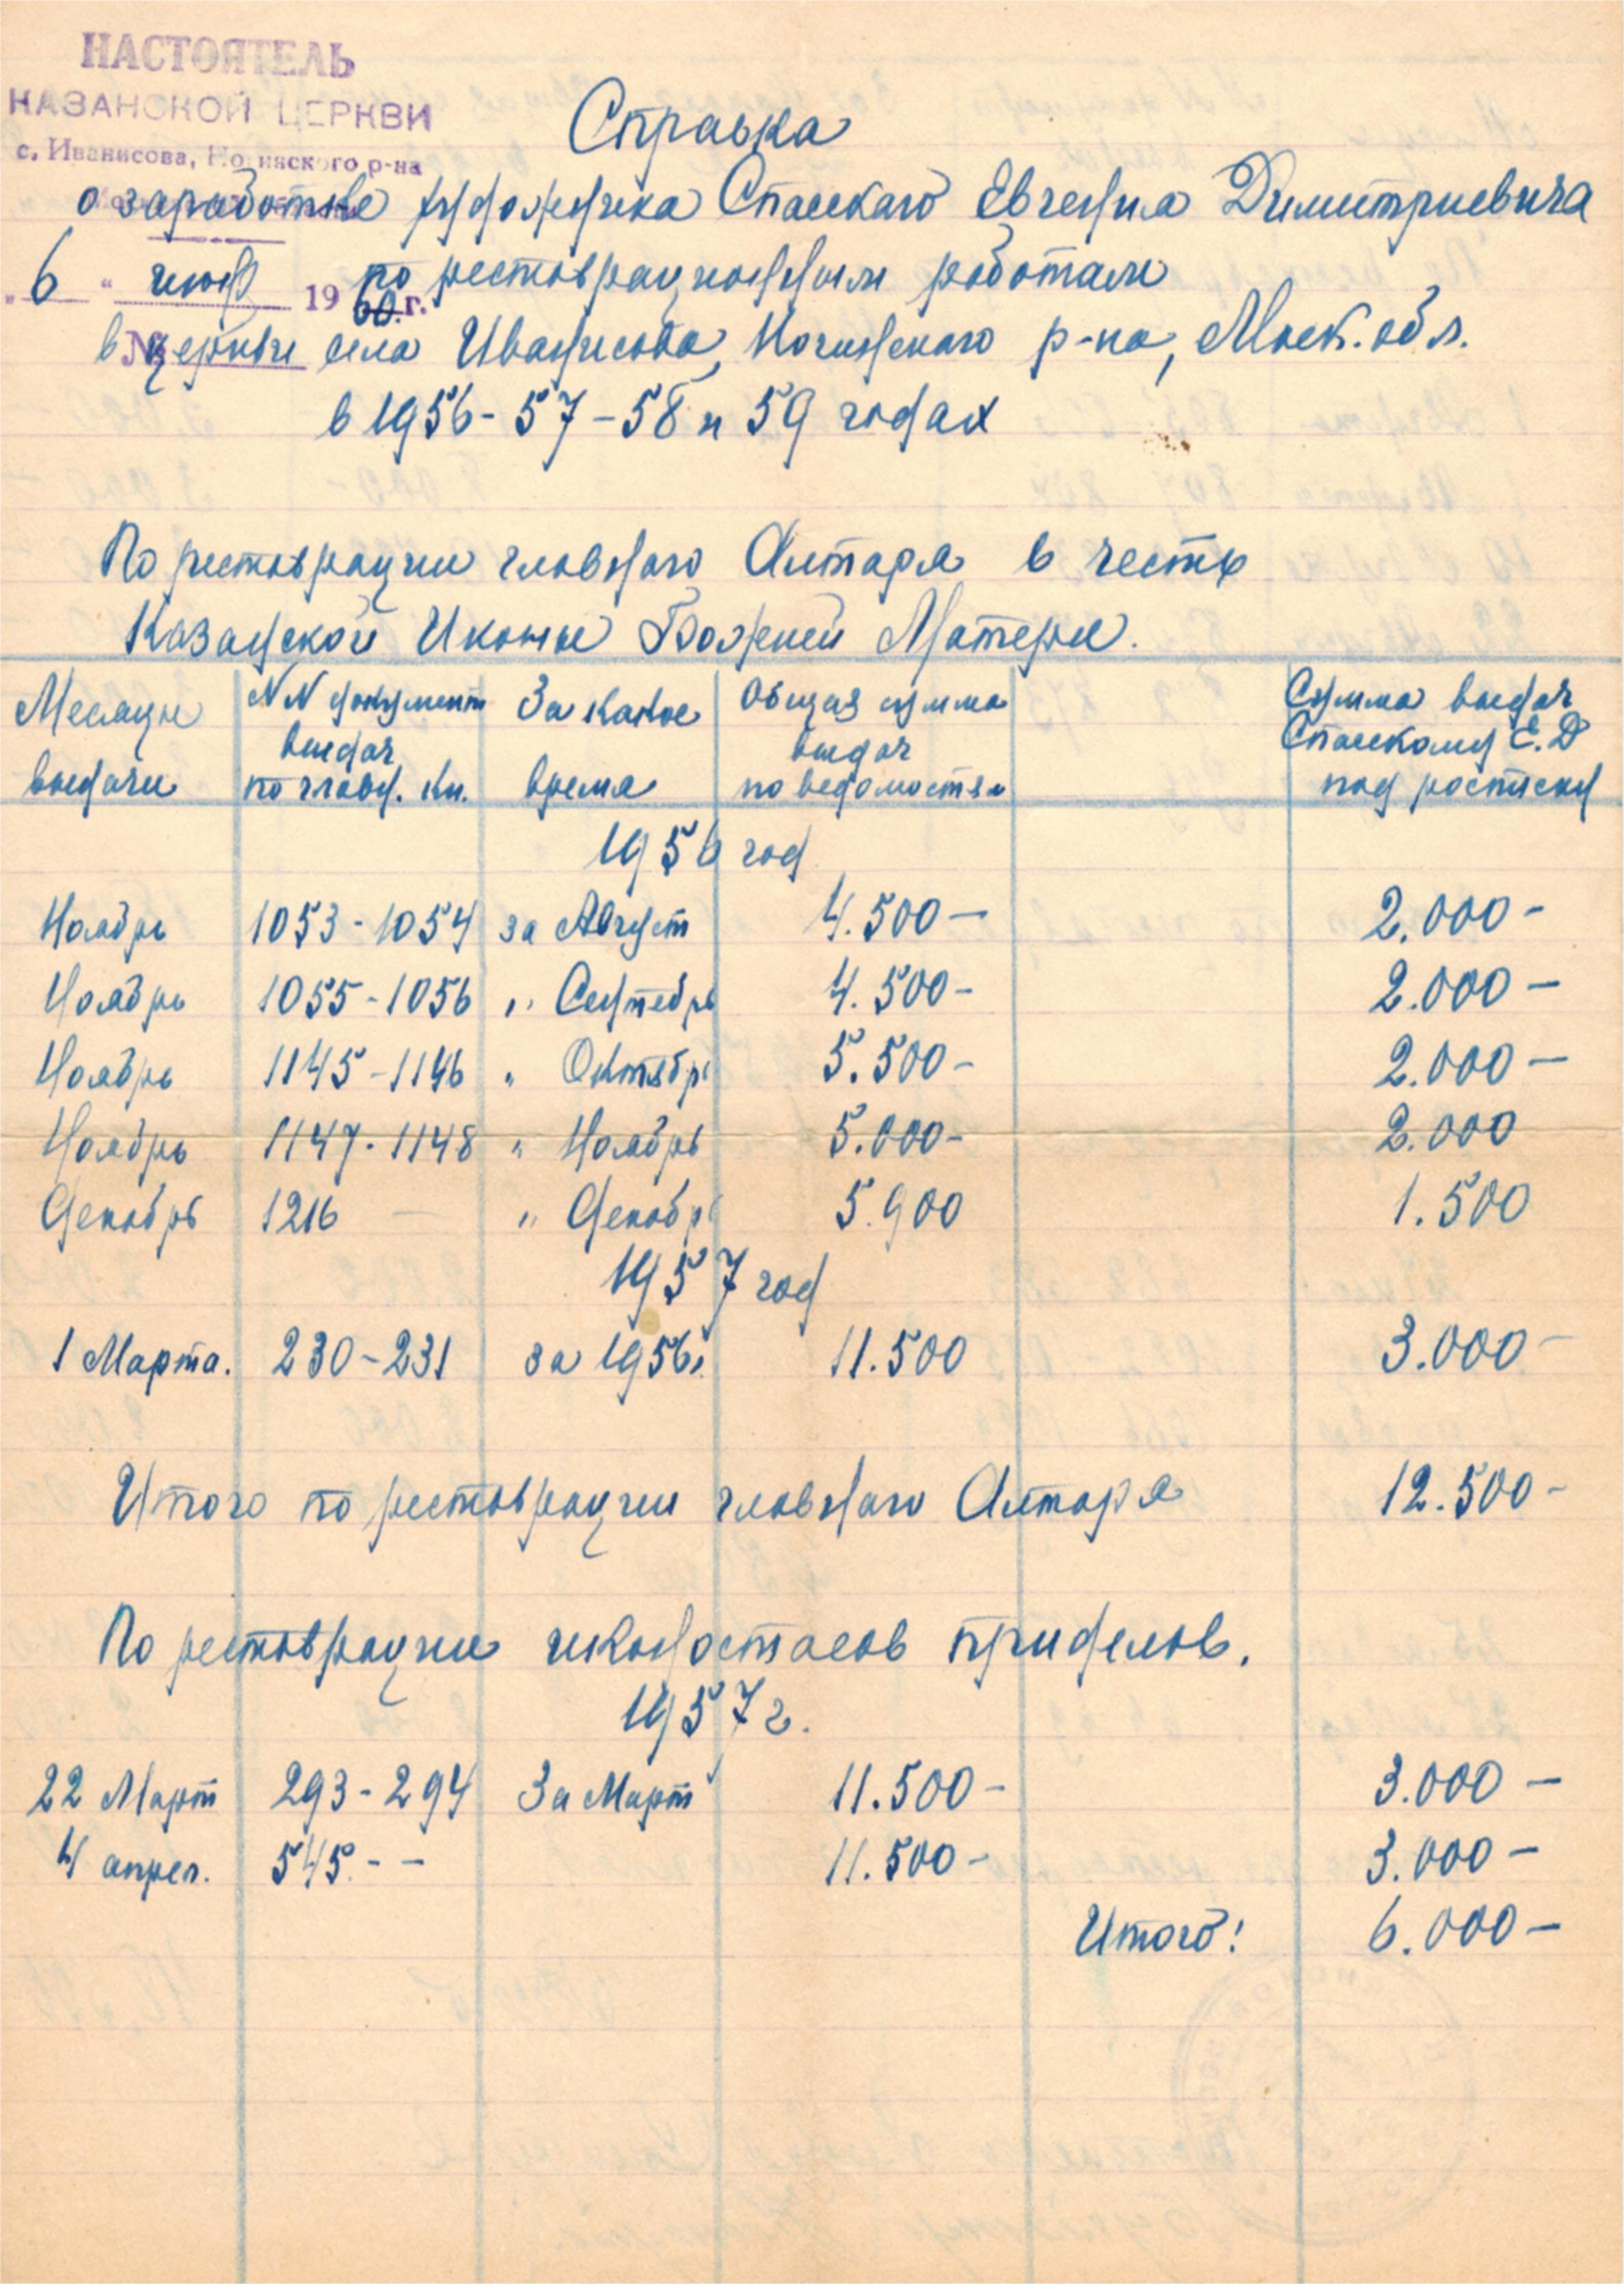 НАСТОЯТЕЛЬ
КАЗАНСКОЙ ЦЕРКВИ
с. Иванисова, Ногинского р-на
Справка
о заработке художника Спасскаго Евгения Димитриевича
"6" июня 1960 г. по реставрационным работам
№ в церкви села Иванисова, Ногинскаго р-на, Моск. обл.
в 1956-57-58 и 59 годах
По реставрации главнаго Алтаря в честь
Казанской Иконы Божией Матери.
Месяцы выдачи | NN документ выдач по главн. кн. | За какое время | Общая сумма выдач по ведомостям | Сумма выдач Спасскому Е.Д под расписку
1956 год
Ноябрь 1053-1054 за Август 4.500— 2.000-
Ноябрь 1055-1056 " Сентябрь 4.500- 2.000—
Ноябрь 1145-1146 " Октябрь 5.500- 2.000—
Ноябрь 1147-1148 " Ноябрь 5.000- 2.000
Декабрь 1216 — " Декабрь 5.900 1.500
1957 год
1 Марта. 230-231 за 1956г. 11.500 3.000-
Итого по реставрации главнаго Алтаря 12.500-
По реставрации иконостасов приделов.
1957 г.
22 Март 293-294 За Март 11.500- 3.000—
4 апрел. 545. - - 11.500- 3.000—
Итого! 6.000—